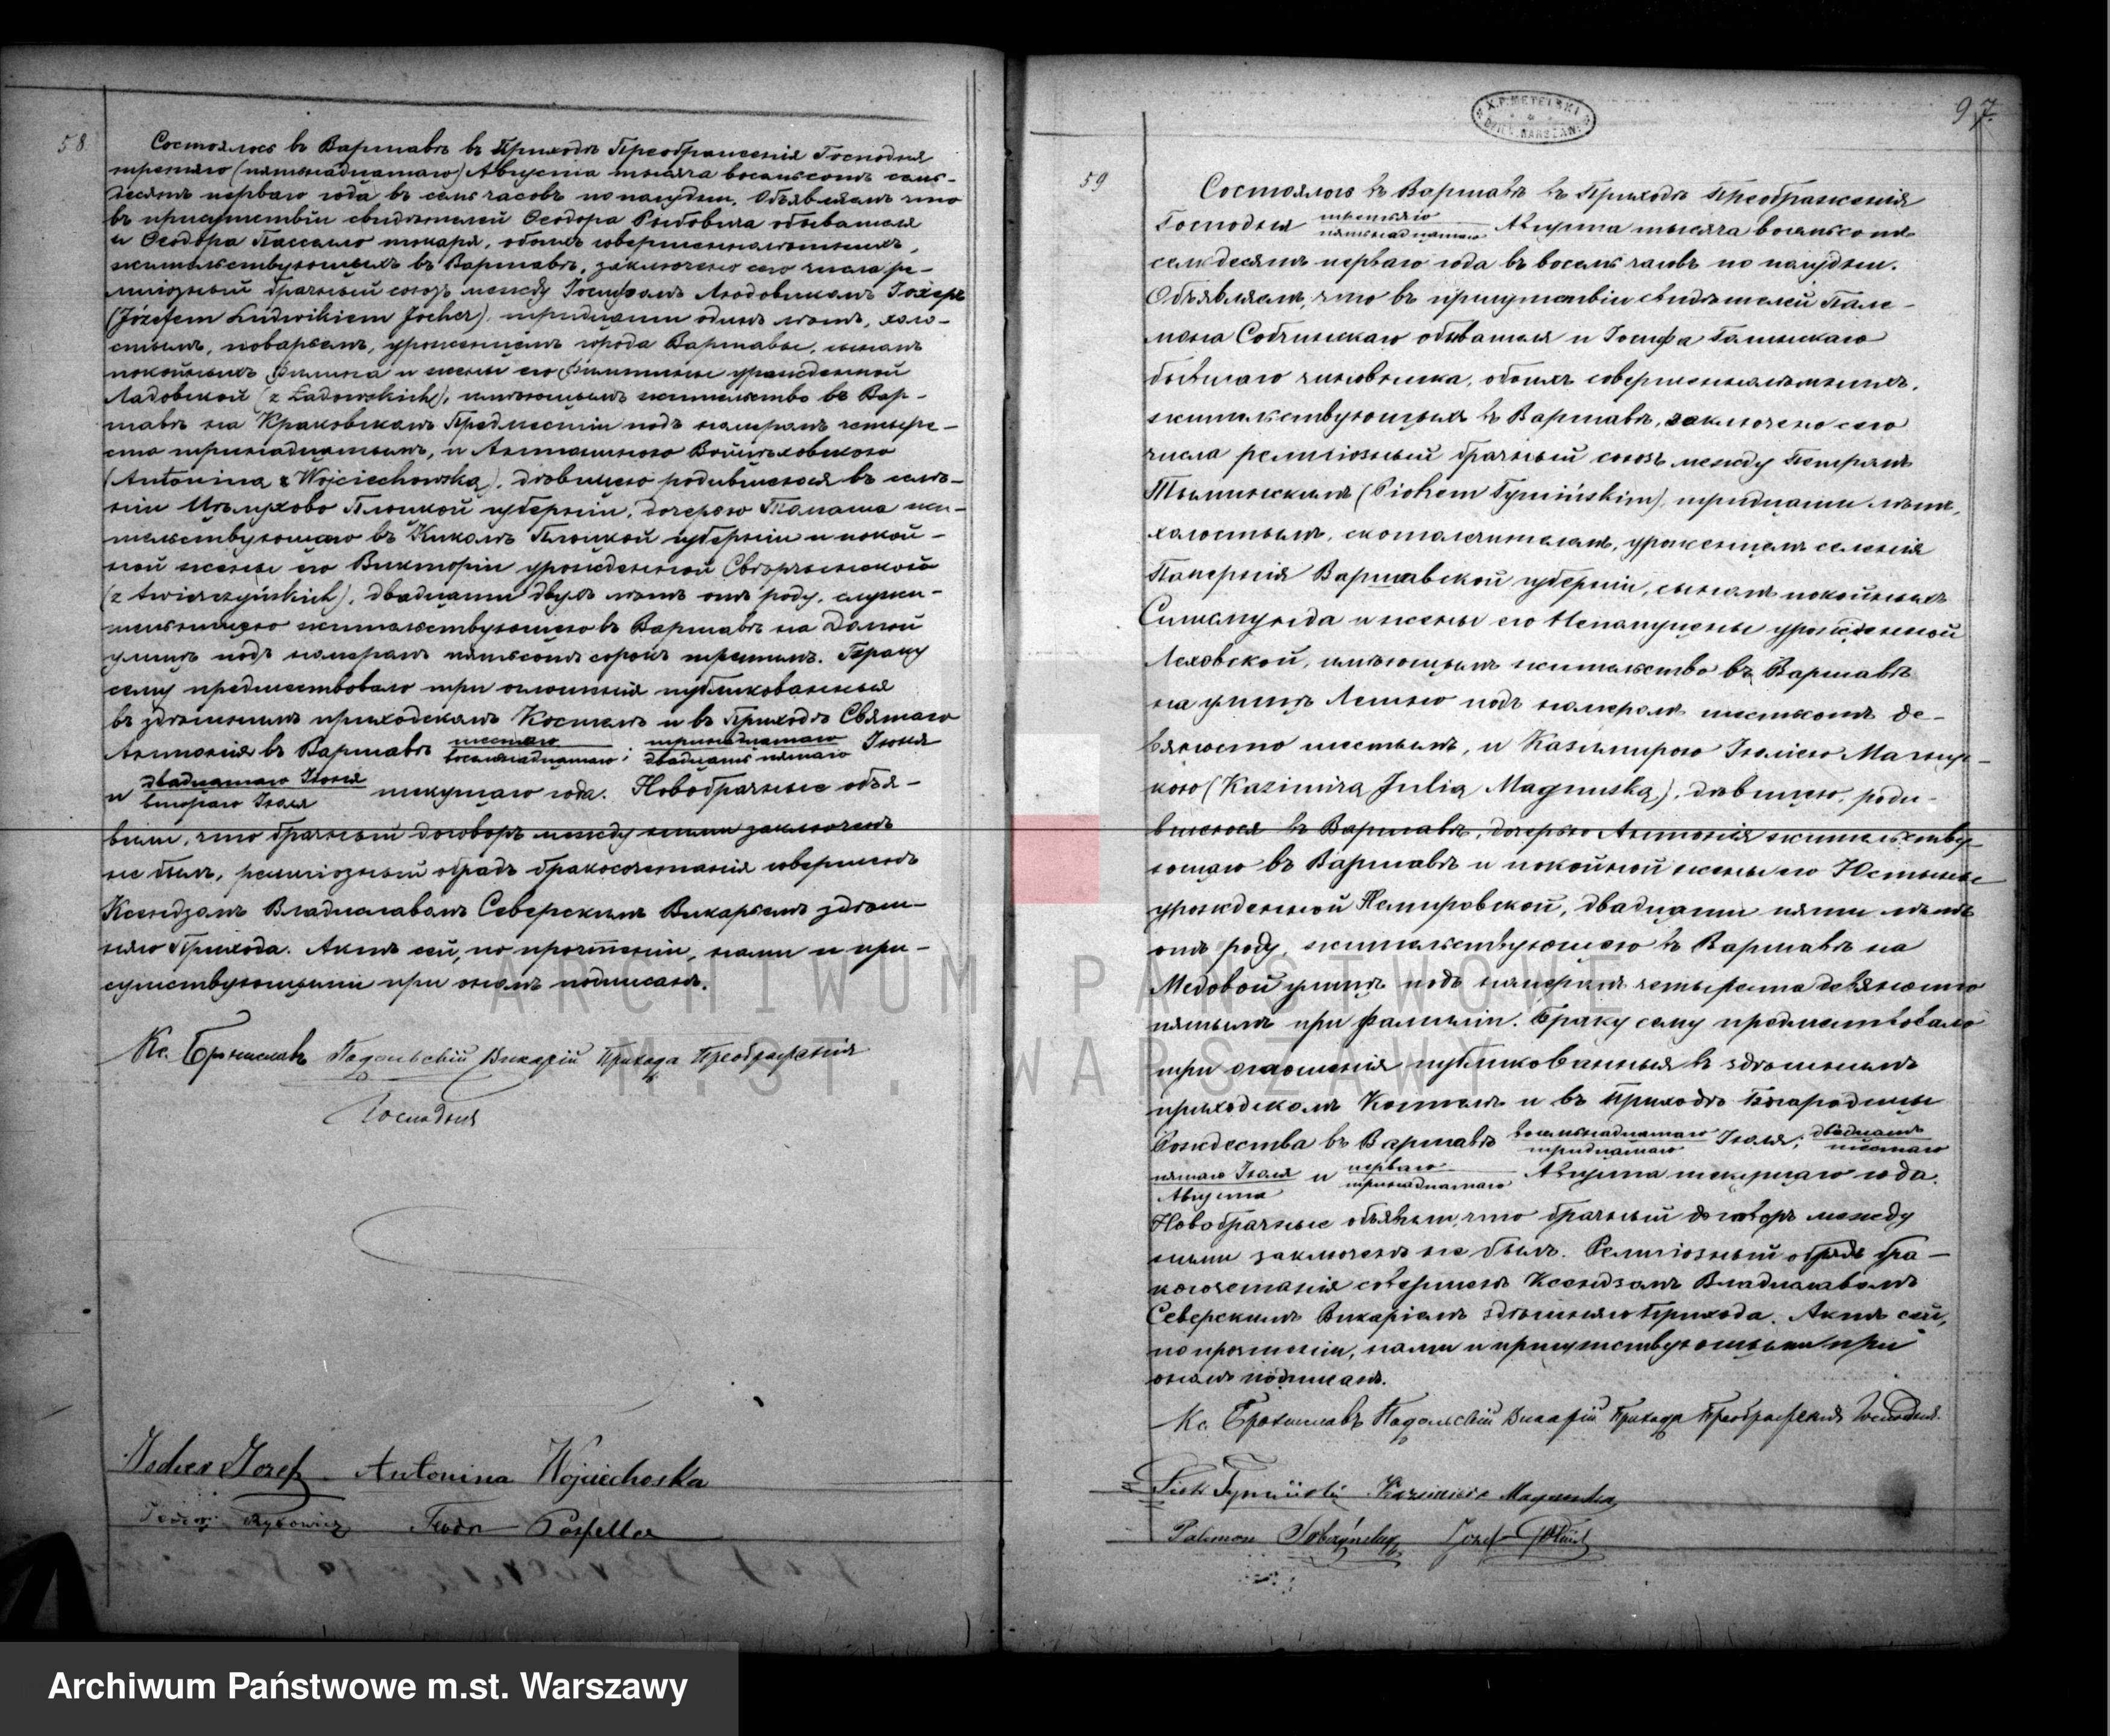 58.
Состоялось въ Варшавѣ въ Приходѣ Преображенія Господня
третьяго (пятнадцатаго) Августа тысяча восемьсотъ семь-
десятъ перваго года въ семь часовъ по полудни. Объявляемъ что
въ присутствіи свидѣтелей Ѳеодора Рыбовича обывателя
и Ѳеодора токаря, обоихъ совершеннолѣтнихъ,
жительствующихъ въ Варшавѣ, заключено сего числа ре-
лигіозный брачный союзъ между Іосифомъ Людовикомъ Іохеръ
(Józefem Ludwikiem Jocher), тридцати одинъ лѣтъ, холо-
стымъ, поваромъ, уроженцемъ города Варшавы, сыномъ
покойныхъ Филипа и жены его урожденной
Ладовской (z Ładowskich), имѣющимъ жительство въ Вар-
шавѣ на Краковскомъ Предместіи подъ номеромъ четыре-
ста тринадцатымъ, и Антониною Войцѣховскою
(Antonina Wojciechowską), дѣвицею родившеюся въ селе-
ніи Плоцкой губерніи, дочерью Томаша жи-
тельствующаго въ Киколѣ Плоцкой губерніи и покой-
ной жены его Викторіи урожденной
(z Świerczyńskich), двадцати двухъ лѣтъ отъ роду, служи-
тельницею жительствующею въ Варшавѣ на
улицѣ подъ номеромъ пятьсотъ сорокъ третьимъ. Браку
сему предшествовало три оглашенія публикованныя
въ здѣшнимъ приходскомъ Костелѣ и въ Приходѣ Святаго
Антонія въ Варшавѣ шестаго/восемнадцатаго; тринадцатаго/двадцать пятаго Іюня
и двадцатаго Іюня/втораго Іюля текущаго года. Новобрачные объя-
вили, что брачный договоръ между ними заключенъ
не былъ, религіозный обрядъ бракосочетанія совершенъ
Ксендзомъ Владиславомъ Северскимъ Викаріемъ здѣш-
няго Прихода. Актъ сей, по прочтеніи, нами и при-
сутствующими при ономъ подписанъ.
Кс. Брониславъ Подольскій Викарій Прихода Преображенія
Господня
Jocher Józef Antonina Wojciechoska
Teodor Rybowicz Teodor
X.P. METELSKI
97.
59
Состоялось въ Варшавѣ въ Приходѣ Преображенія
Господня третьяго/пятнадцатаго Августа тысяча восемьсотъ
семьдесятъ перваго года въ восемь часовъ по полудни.
Объявляемъ, что въ присутствіи свидѣтелей Пале-
мона Собчинскаго обывателя и Іосифа
бывшаго чиновника, обоихъ совершеннолѣтнихъ,
жительствующихъ въ Варшавѣ, заключено сего
числа религіозный брачный союзъ между Петромъ
Тыминскимъ (Piotrem Tymińskim), тридцати лѣтъ,
холостымъ, скотолечителемъ, уроженцемъ селенія
Паперния Варшавской губерніи, сыномъ покойныхъ
Сигизмунда и жены его Непомуцены урожденной
Леховской, имѣющимъ жительство въ Варшавѣ
на улицѣ Лешно подъ номеромъ шестьсотъ де-
вяносто шестымъ, и Казимирою Юліею Магнус-
кою (Kazimira Julia Magnuska), дѣвицею, роди-
вшеюся въ Варшавѣ, дочерью Антонія жительству-
ющаго въ Варшавѣ и покойной жены его Юстины
урожденной Немировской, двадцати пяти лѣтъ
отъ роду, жительствующею въ Варшавѣ на
Медовой улицѣ подъ номеромъ четыреста девяносто
пятымъ при фамиліи. Браку сему предшествовало
три оглашенія публикованныя въ здѣшнимъ
приходскомъ Костелѣ и въ Приходѣ Богородицы
Рождества въ Варшавѣ восемнадцатаго/тридцатаго Іюля; двадцать/шестаго
пятаго Іюля/Августа и перваго/тринадцатаго Августа текущаго года.
Новобрачные объявили, что брачный договоръ между
ними заключенъ не былъ. Религіозный обрядъ бра-
косочетанія совершенъ Ксендзомъ Владиславомъ
Северскимъ Викаріемъ здѣшняго Прихода. Актъ сей,
по прочтеніи, нами и присутствующими при
ономъ подписанъ.
Кс. Брониславъ Подольскій Викарій Прихода Преображенія Господня.
Piotr Tymiński Kazimira Magnuska
Palemon Sobczyński Józef
ARCHIWUM PAŃSTWOWE
M.ST. WARSZAWY
Archiwum Państwowe m.st. Warszawy